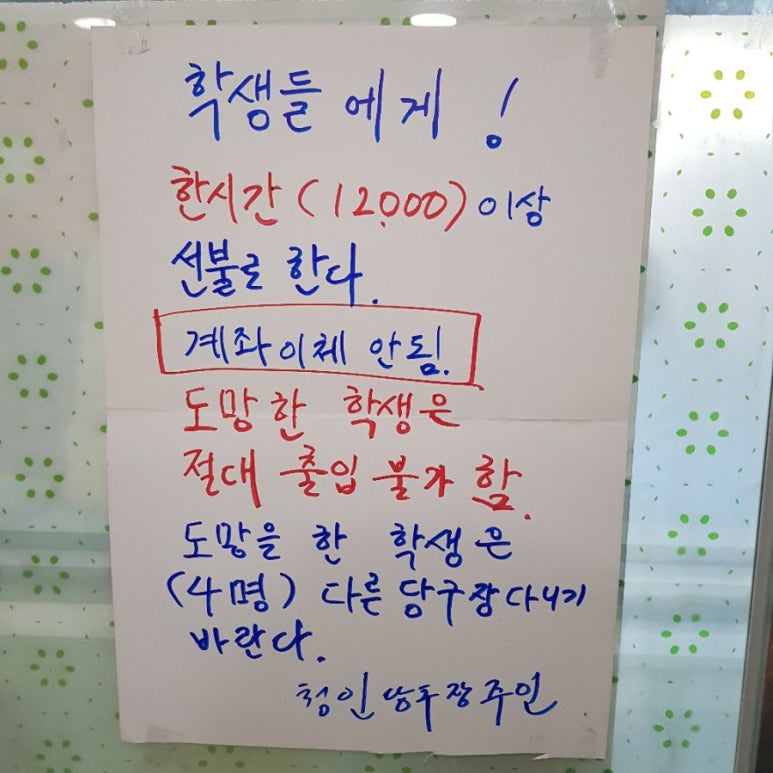 학생들에게!
한시간(12,000)이상
선불로 한다.
계좌이체 안됨.
도망한 학생은
절대 출입 불가 함.
도망을 한 학생은
(4명) 다른 당구장 다니기
바란다.
당구장 주인